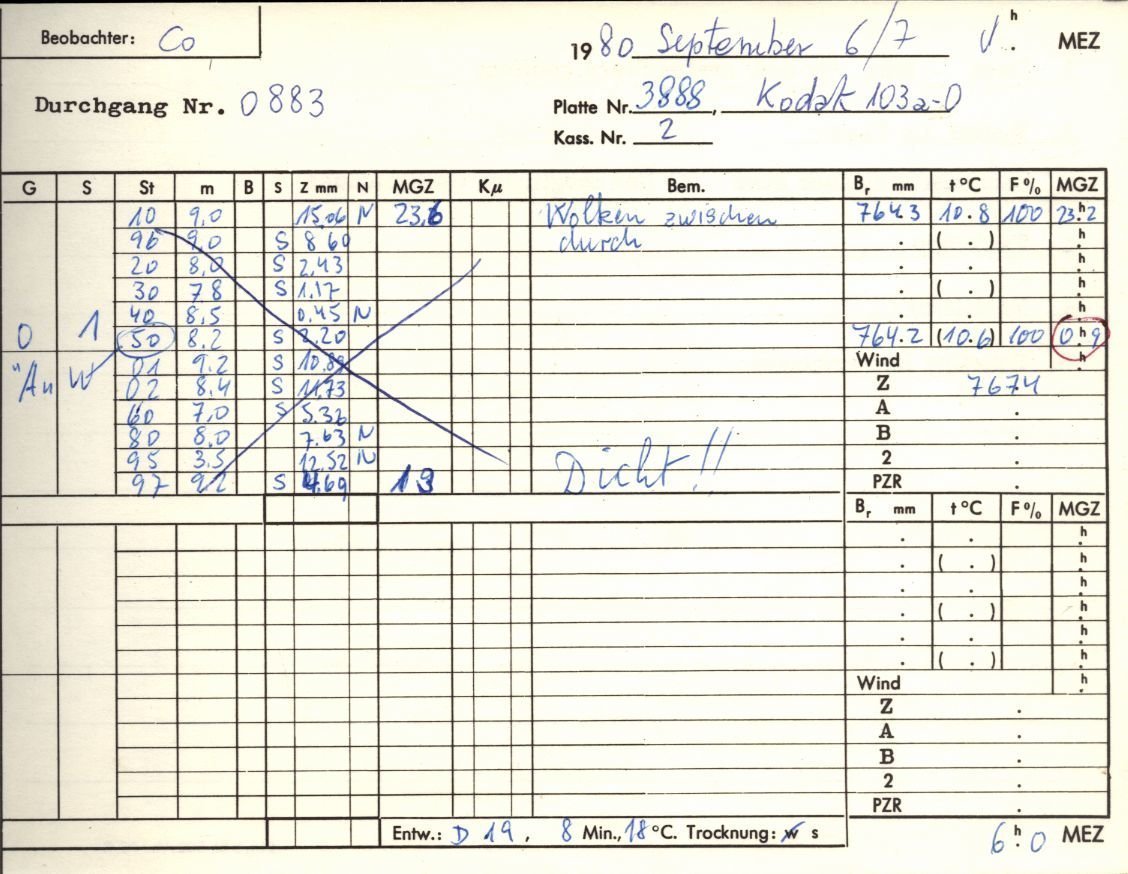 Beobachter: Co
1980 September 6/7 h MEZ
Durchgang Nr. 0883
Platte Nr. 3888, Kodak 103a-O
Kass. Nr. 2
G S St m B S Z mm N MGZ Kµ Bem. Br mm t °C F% MGZ
10 9,0 15,06 N 23,6 Wolken zwischen 764.3 10.8 100 23h2
96 9,0 S 8 60 durch . ( . ) h
20 8,0 S 2,43 . . h
30 78 S 1,17 . ( . ) h
40 8,5 0,45 N . . h
0 1 50 8,2 S 8,20 764.2 (10.6) 100 0h9
"An W 01 9.2 S 10.89 Wind h
02 8,4 S 11,73 Z 767.4
60 7,0 S 5.36 A .
80 8,0 7.63 N B .
95 3.5 12.52 N Dicht!! 2 .
97 9,2 S 4,69 13 PZR .
Br mm t °C F% MGZ
. . h
. ( . ) h
. . h
. ( . ) h
. . h
. ( . ) h
Wind h
Z .
A .
B .
2 .
PZR .
Entw.: D 19, 8 Min., 18 °C. Trocknung: w s
6h0 MEZ